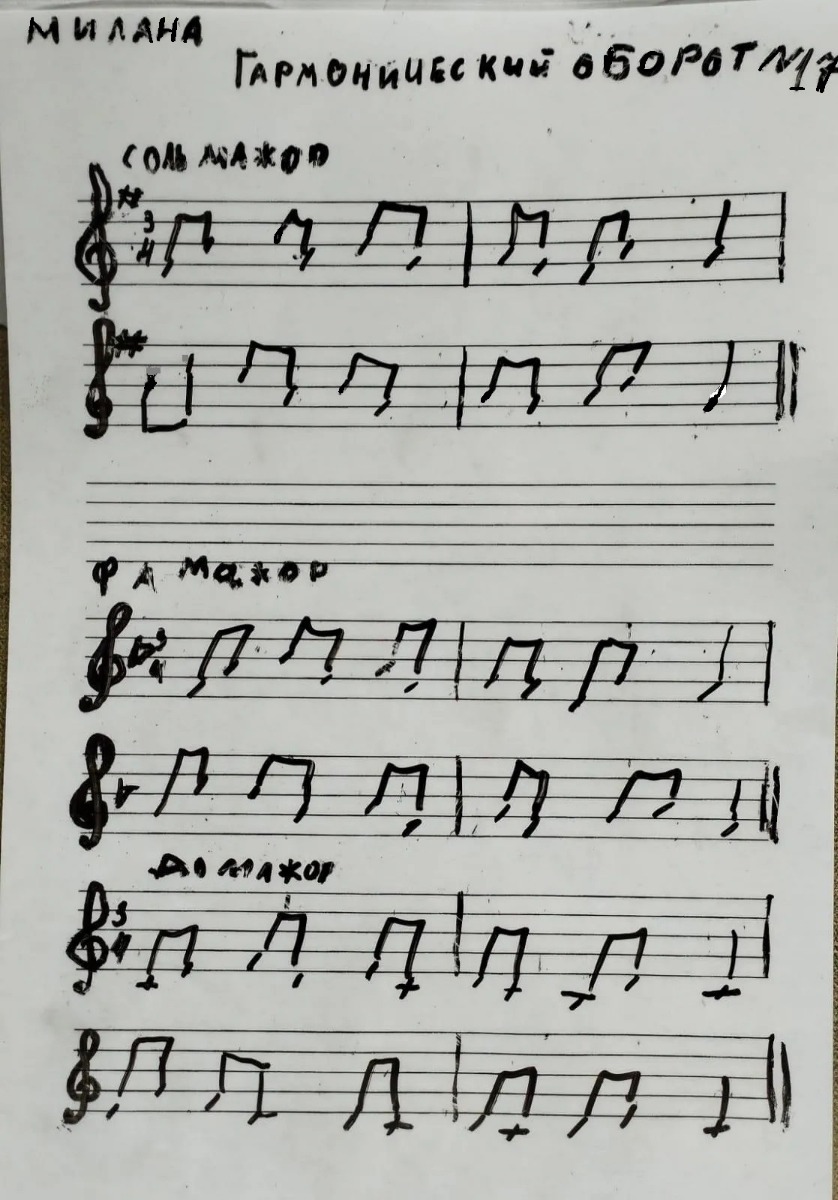 МИЛАНА
ГАРМОНИЧЕСКИЙ ОБОРОТ №17
СОЛЬ МАЖОР
3
4
ФА МАЖОР
3
4
ДО МАЖОР
3
4